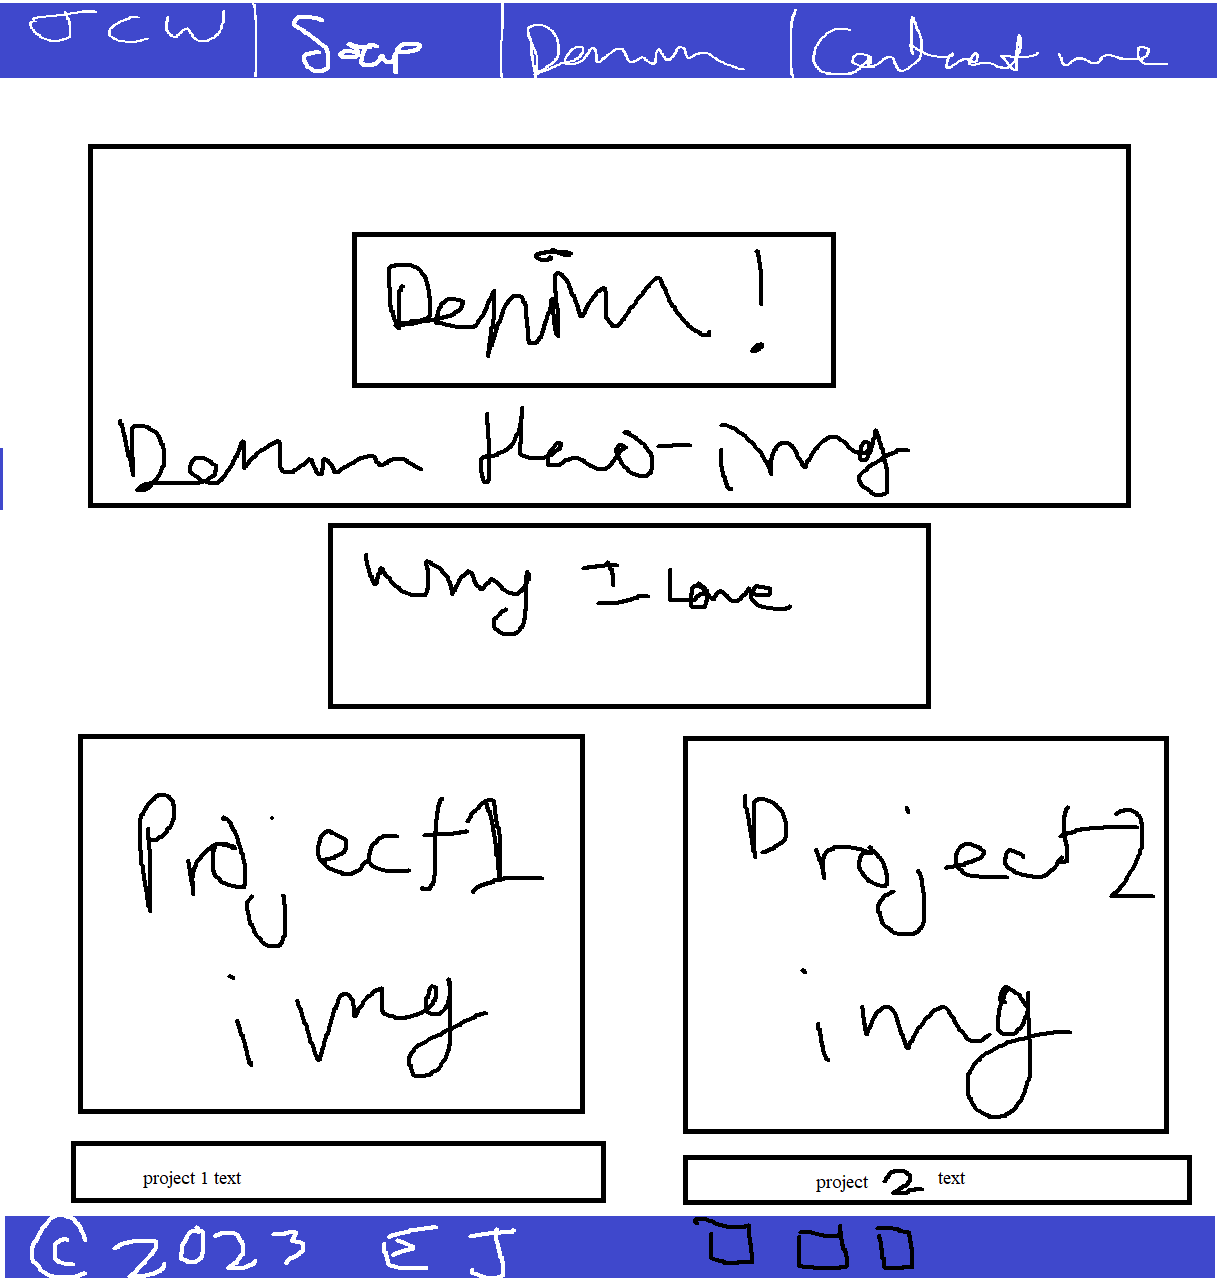 JCW Soap Denim Contact me
Denim!
Denim Hero-img
Why I Love
Project 1
img
Project 2
img
project 1 text
project 2 text
© 2023 EJ